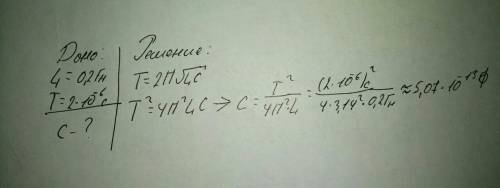 Дано:
L = 0,2 Гн
T = 2·10⁻⁶ с
C - ?
Решение:
T = 2П√LC
T² = 4П²LC → C = T²/4П²L = (2·10⁻⁶)²c/4·3,14²·0,2Гн ≈ 5,07·10⁻¹³ Ф